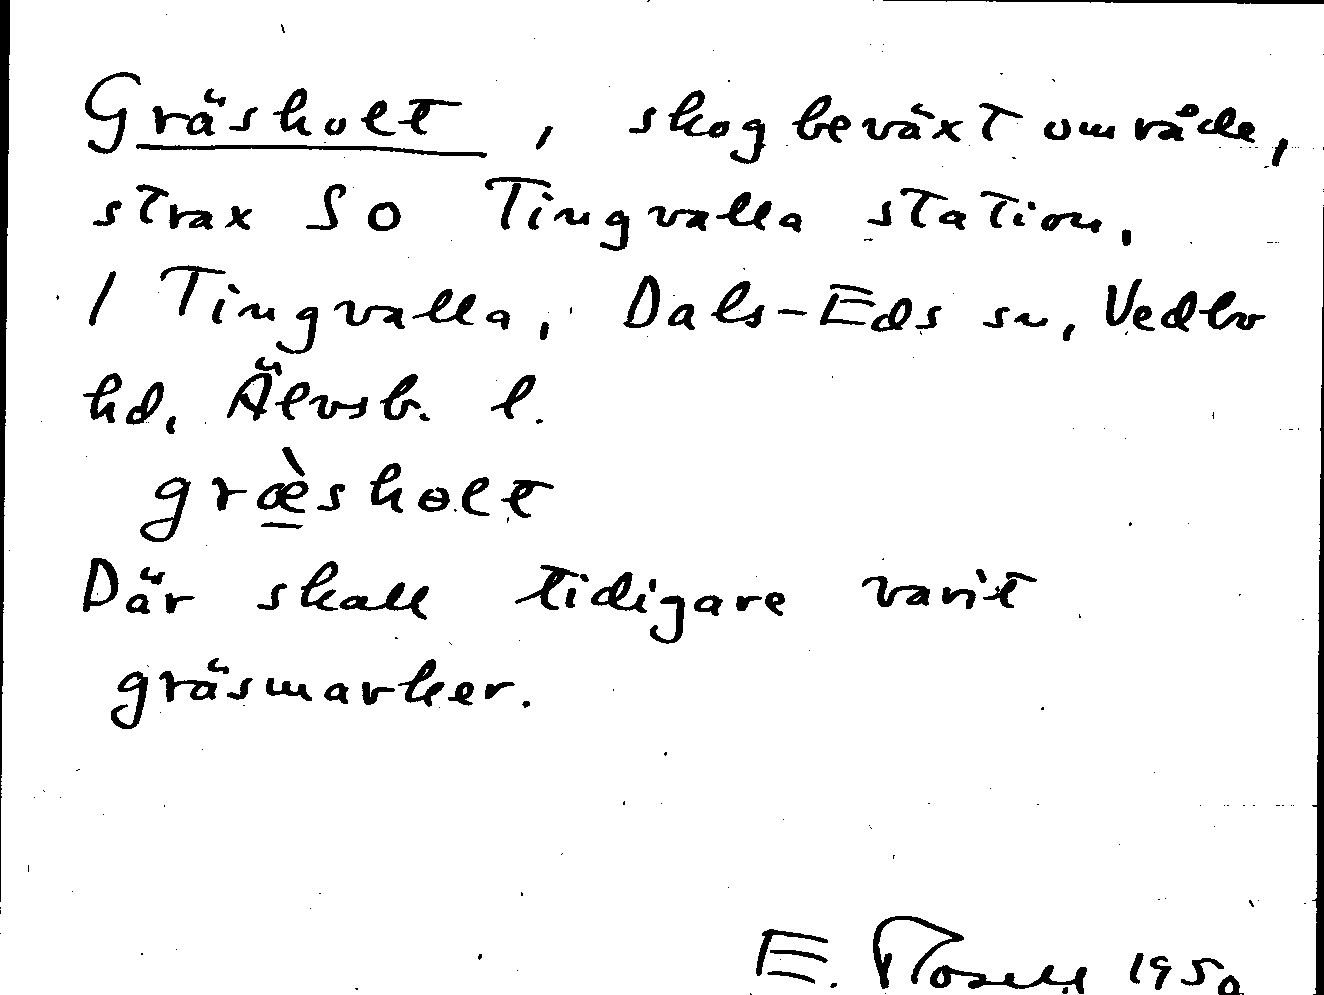 Gräsholt, skogbeväxt område,
strax SO Tingvalla station,
1 Tingvalla, Dals-Eds sn, Vedbo
hd, Älvsb. l.
græ̀sholt
Där skall tidigare varit
gräsmarker.
E. Rosell 1950